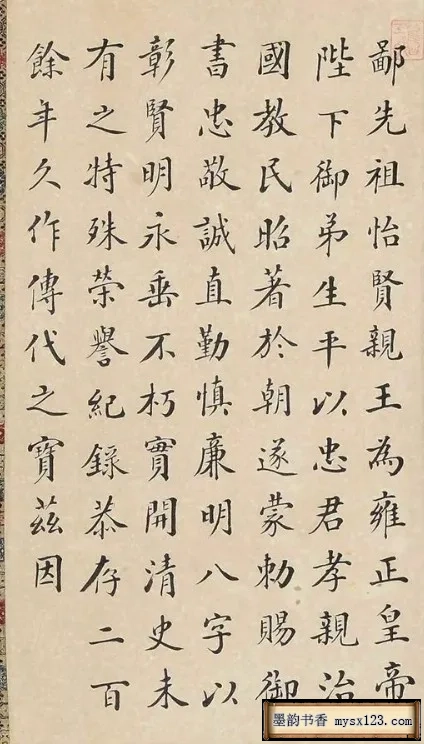 鄙先祖怡賢親王為雍正皇帝
陛下御弟生平以忠君孝親治
國教民昭著於朝遂蒙勅賜御
書忠敬誠直勤慎廉明八字以
彰賢明永垂不朽實開清史未
有之特殊榮譽紀錄恭存二百
餘年久作傳代之寶茲因
墨韵书香 mysx123.com